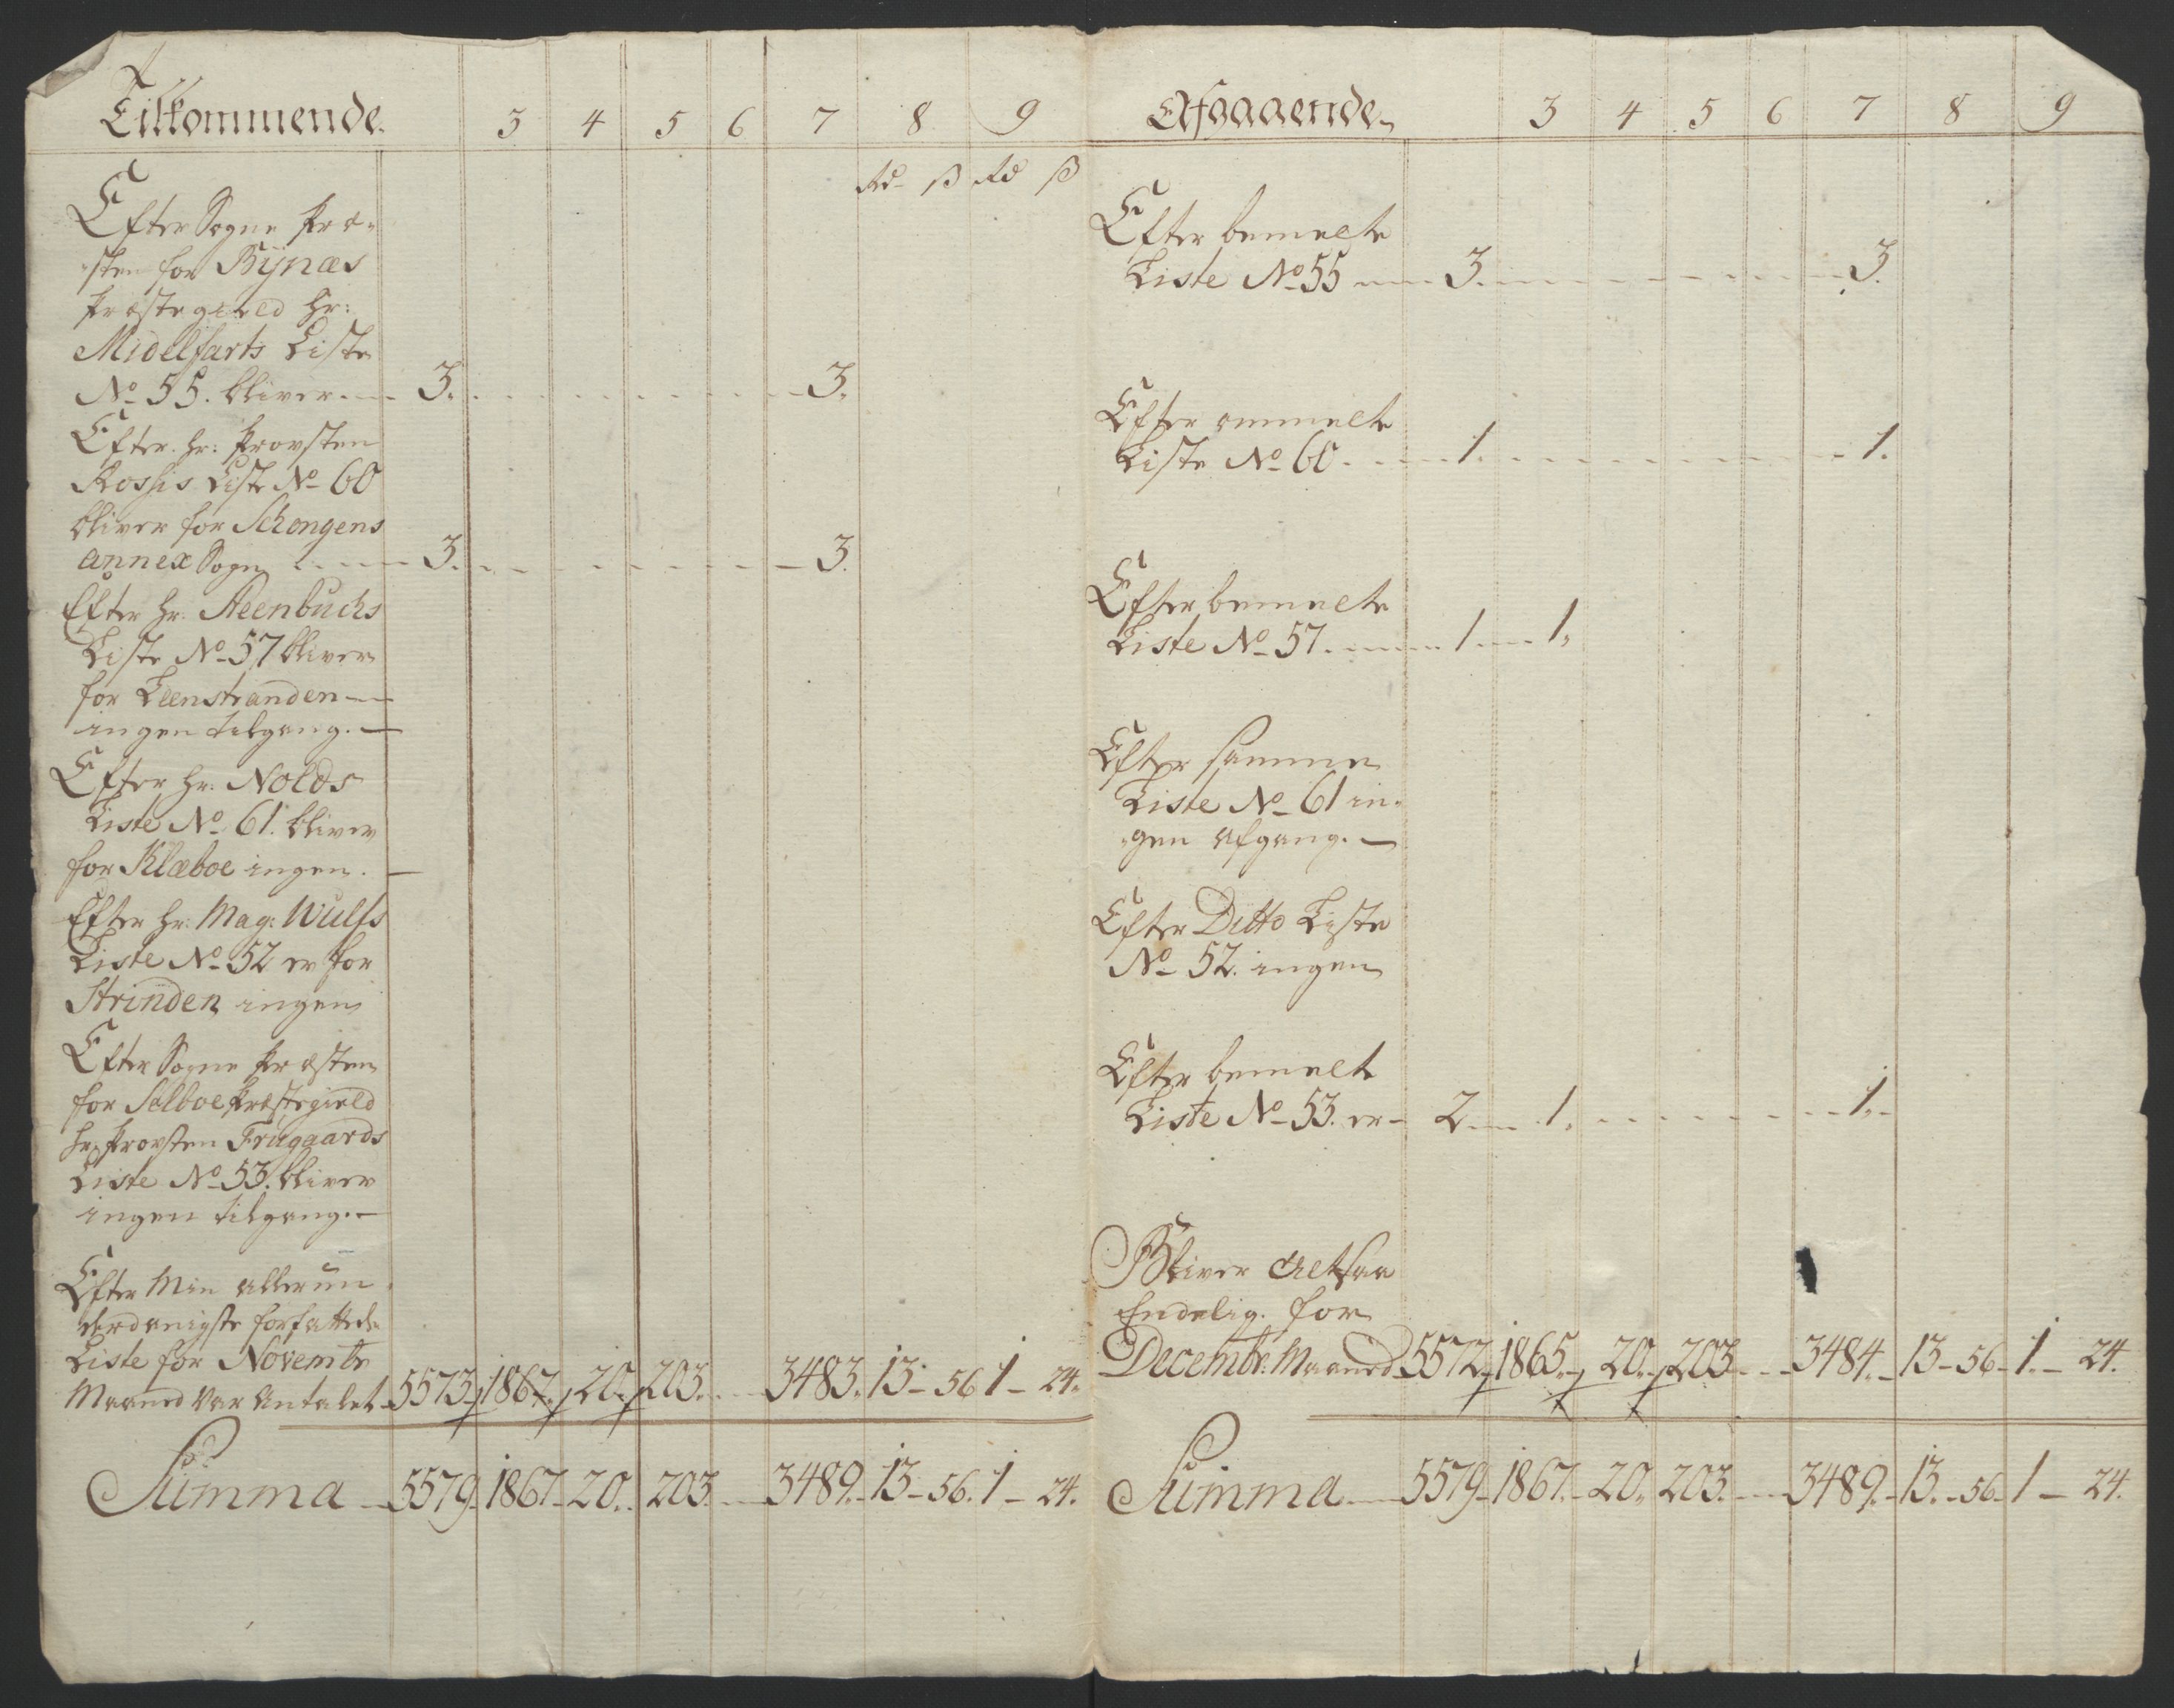 Tilkommende. 3 4 5 6 7 8 9
Rd ß Rd ß
Efter Sogne Præ-
sten for Bÿnæs
Præstegield Hr:
Midelfarts Liste
No 55. bliver 3. 3.
Efter Hr: Provsten
Liste No 60
bliver for
annex Sogn 3. 3.
Efter Hr: Steenbuchs
Liste No 57 bliver
for Leenstranden
ingen tilgang.
Efter Hr: Nolds
Liste No 61. bliver
for Klæboe ingen.
Efter Hr: Mag: Wulfs
Liste No 52 er for
Strinden ingen
Efter Sogne Præsten
for Selboe Præstegield
Hr Provsten
Liste No 53. bliver
ingen tilgang.
Efter Min allerun
derdanigste forfattede
Liste for Novembr
Maaned var Antalet 5573 1867. 20. 203. 3483. 13 - 56 1 - 24.
Summa 5579. 1867 20. 203. 3489. 13 - 56. 1 - 24.
Afgaaende 3 4 5 6 7 8 9
Efter bemelte
Liste No 55 3. 3.
Efter ommelte
Liste No 60. 1. 1.
Efter bemelte
Liste No 57. 1 1.
Efter samme
Liste No 61 in-
gen afgang.
Efter Ditto Liste
No 52. ingen
Efter bemelte
Liste No 53. er 2 1. 1.
Bliver Altsaa
Endelig. for
Decembr: Maaned 5572 1865. 20. 203 3484. 13 - 56 - 1. - 24.
Summa 5579 1867. 20. 203. 3489. 13. - 56 - 1 - 24.